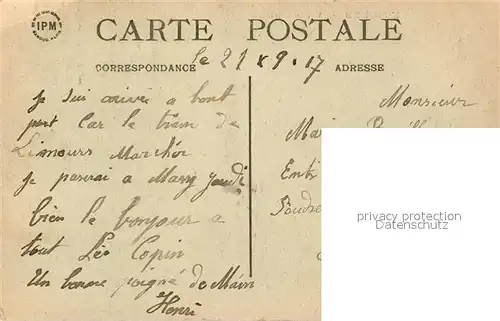 IPM
CARTE POSTALE
CORRESPONDANCE
le 21 x 9 . 17
ADRESSE
Je sui arivé a bont
port Car le tram de
Limours Marchér
je paserai a Massy jeudi
bien le bonjour a
tout Léo Copin
Un bonne poigné de Main
Henri
Monsieur
privacy protection
Datenschutz